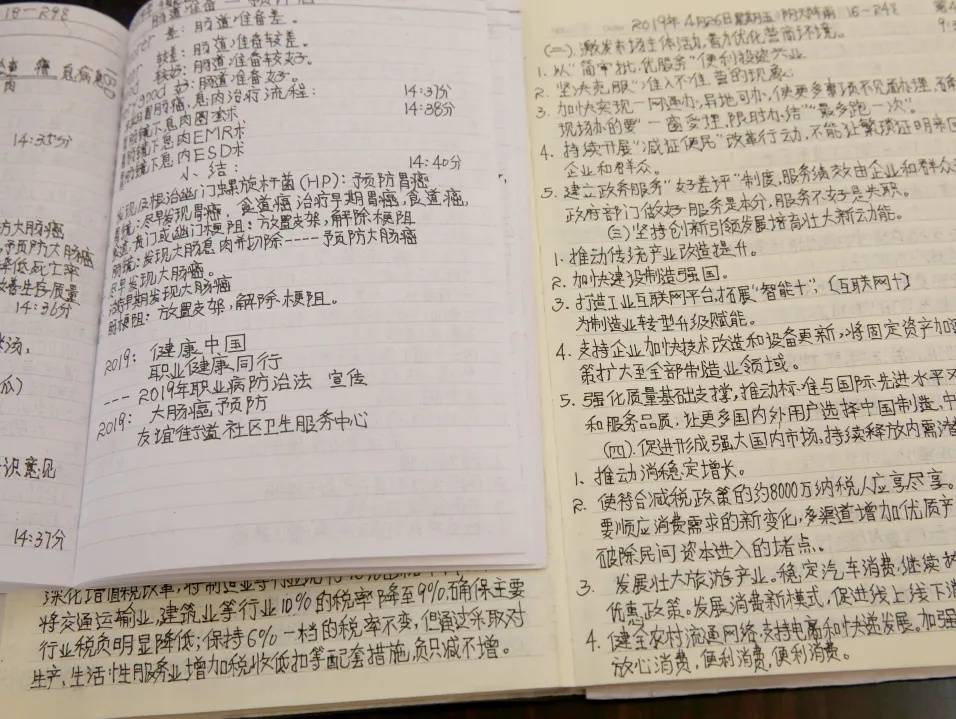 18-298
14:35分
防大肠癌
预防大肠癌
降低死亡率
改善生存质量
14:36分
瓜)
识意见
14:37分
差:肠道准备差。
较差:肠道准备较差。
较好:肠道准备较好。
good 好:肠道准备好。
肠癌,息肉治疗流程: 14:37分
镜下息肉圈套术 14:38分
镜下息肉EMR术
镜下息肉ESD术
小、结: 14:40分
发现及根治幽门螺旋杆菌(HP):预防胃癌
尽早发现胃癌,食道癌治疗早期胃癌,食道癌,
贲门或幽门梗阻:放置支架,解除梗阻
肠镜:发现大肠息肉并切除----预防大肠癌
尽早发现大肠癌。
早期发现大肠癌
肠梗阻:放置支架,解除梗阻。
2019:健康中国
职业健康同行
--- 2019年职业病防治法 宣传
2019:大肠癌预防
友谊街道社区卫生服务中心
深化增值税改革,将制造业等行业现行16%的税率
将交通运输业,建筑业等行业10%的税率降至9%.确保主要
行业税负明显降低;保持6%一档的税率不变,但通过采取对
生产、生活性服务业增加税收低扣等配套措施,负只减不增。
2019年4月26日星期五 阴天阵雨 18-298
(二)激发市场主体活力,着力优化营商环境。
1.以“简审批,优服务”便利投资兴业
2.坚决克服“准入不准营的现象。
3.加快实现一网通办,异地可办,使更多事项不见面办理,确
现场办的要“一窗受理,限时办结”“最多跑一次”。
4.持续开展“减证便民”改革行动,不能让繁琐证明来回
企业和群众。
5.建立政务服务“好差评”制度,服务绩效由企业和群众
政府部门做好服务是本分,服务不好是失职。
(三)坚持创新引领发展培育壮大新动能。
1.推动传统产业改造提升。
2.加快建设制造强国。
3.打造工业互联网平台,拓展“智能十”,(互联网十)
为制造业转型升级赋能。
4.支持企业加快技术改造和设备更新,将固定资产加速
策扩大至全部制造业领域。
5.强化质量基础支撑,推动标准与国际先进水平对
和服务品质,让更多国内外用户选择中国制造、中
(四).促进形成强大国内市场,持续释放内需潜
1、推动消稳定增长。
2、使符合减税政策的约8000万纳税人应享尽享。
要顺应消费需求的新变化,多渠道增加优质产
破除民间资本进入的堵点。
3.发展壮大旅游产业。稳定汽车消费,继续执
优惠政策。发展消费新模式,促进线上线下消
4.健全农村流通网络,支持电商和快递发展。加强
放心消费,便利消费,便利消费。